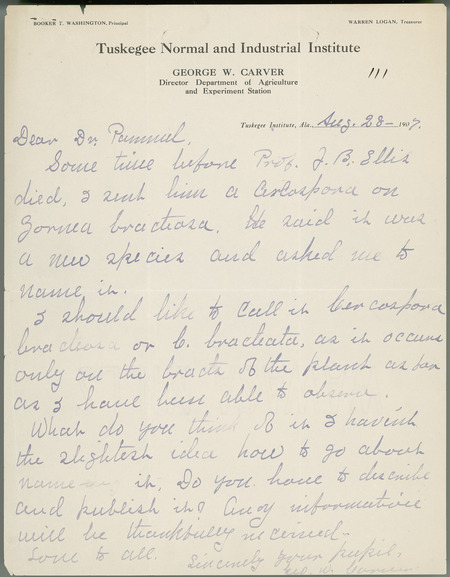 BOOKER T. WASHINGTON, Principal
WARREN LOGAN, Treasurer
Tuskegee Normal and Industrial Institute
GEORGE W. CARVER
Director Department of Agriculture
and Experiment Station
111
Tuskegee Institute, Ala., Aug. 28- 1907.
Dear Dr. Pammel,
Some time before Prof. J. B. Ellis
died, I sent him a Cercospora on
Zornea bracteosa. He said it was
a new species and asked me to
name it.
I should like to call it Cercospora
bracteosa or C. bracteata, as it occurs
only on the bracts of the plant as far
as I have been able to observe.
What do you think of it I haven't
the slightest idea how to go about
naming it. Do you have to describe
and publish it? Any information
will be thankfully received-
Love to all. Sincerely your pupil,
Geo. W. Carver